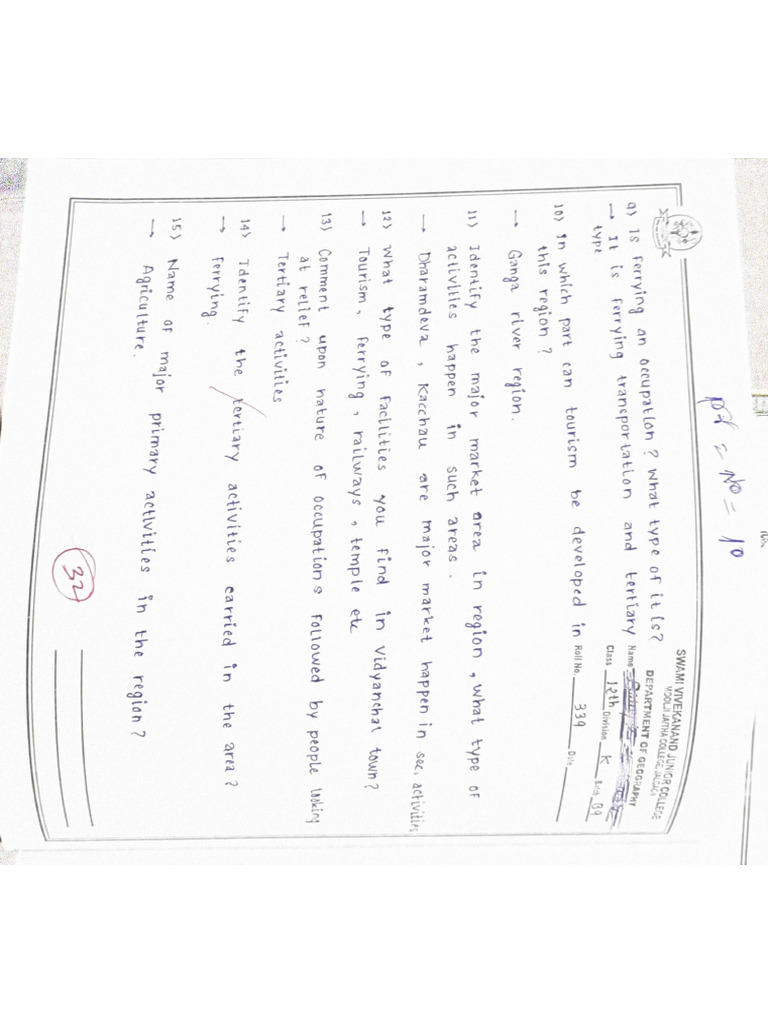 Pr = No = 10
SWAMI VIVEKANAND JUNIOR COLLEGE
MOOLJI JAITHA COLLEGE, JALGAON
DEPARTMENT OF GEOGRAPHY
Name
Class 12th Division K Batch B9
Roll No. 339 Date
9) Is ferrying an occupation ? What type of it is?
→ It is ferrying transportation and tertiary
type.
10) In which part can tourism be developed in
this region ?
→ Ganga river region.
11) Identify the major market area in region , what type of
activities happen in such areas .
→ Dharamdeva , Kacchau are major market happen in sec. activities
12) What type of facilities you find in Vidyanchal town?
→ Tourism , ferrying , railways , temple etc
13) Comment upon nature of occupations followed by people looking
at relief ?
→ Tertiary activities
14) Identify the tertiary activities carried in the area ?
→ Ferrying.
15) Name of major primary activities in the region ?
→ Agriculture.
32